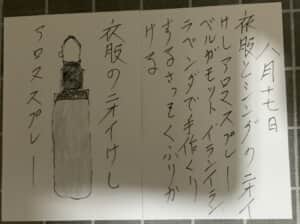 八月十七日
衣服とシンダーク ニオイ
けしアロマスプレー
ベルガモット イランイラン
ラベンダで手作くり
するさっそくふりか
ける
衣服のニオイけし
アロマスプレー